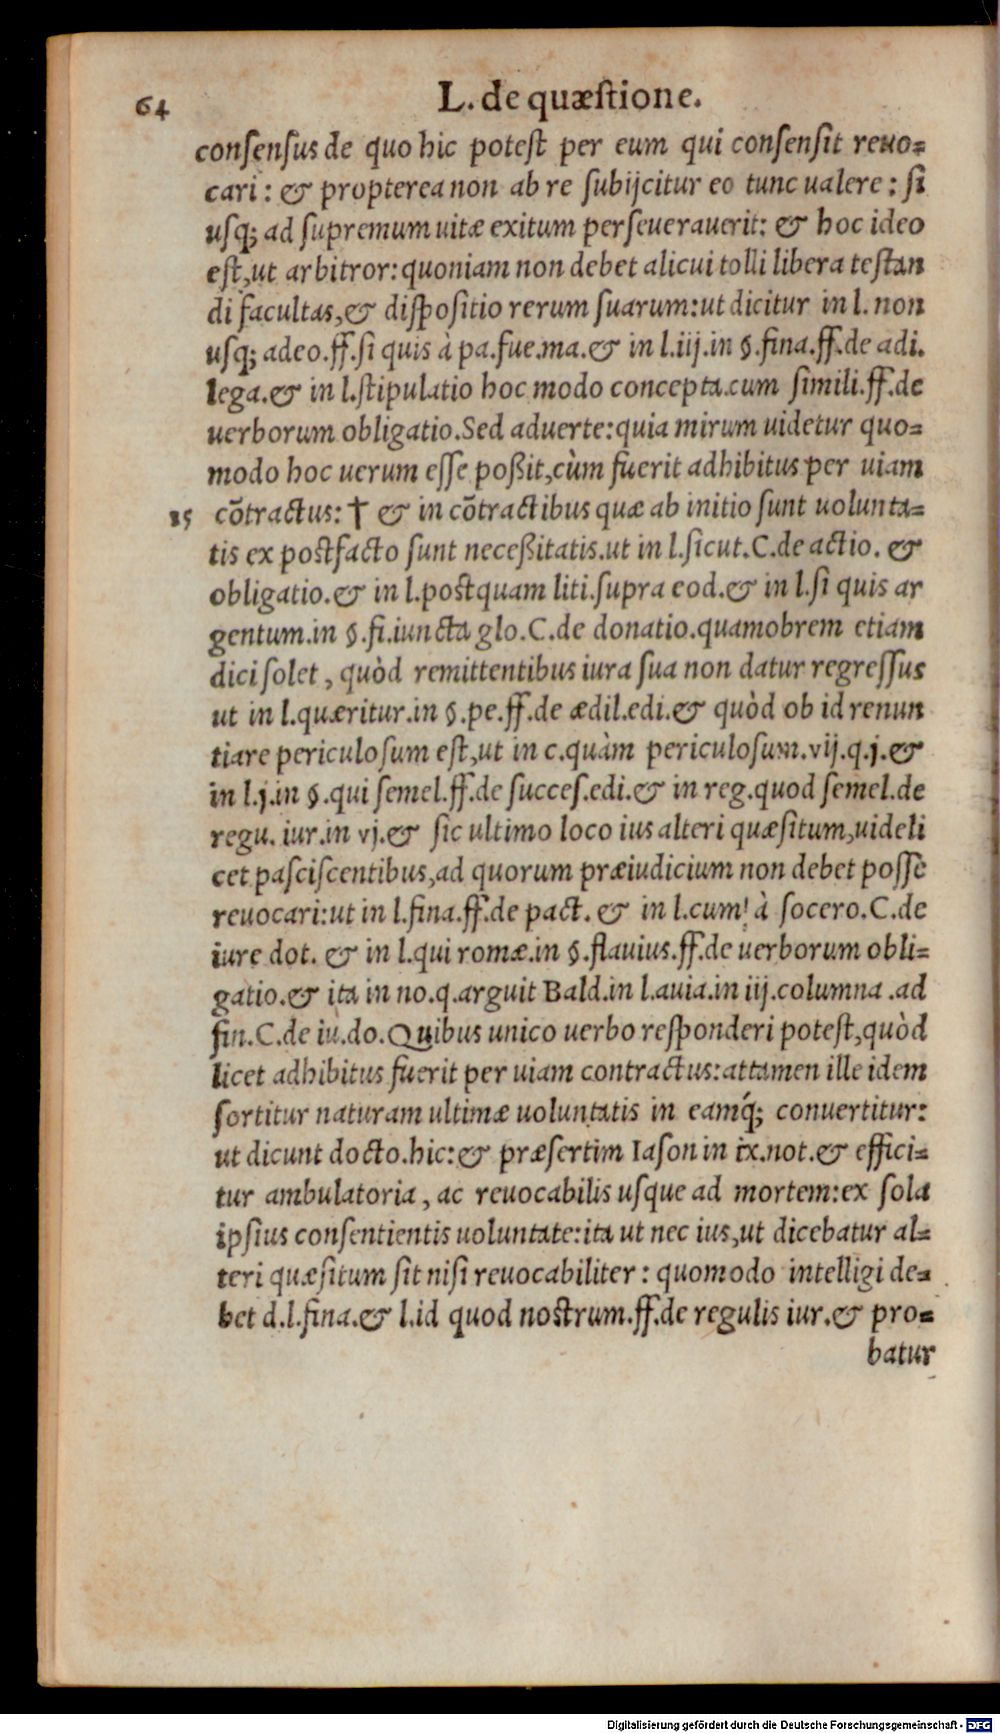 64
L. de quæſtione.
conſenſus de quo hic poteſt per eum qui conſenſit reuo=
cari: & propterea non ab re ſubijcitur eo tunc ualere: ſi
uſq; ad ſupremum uitæ exitum perſeuerauerit: & hoc ideo
eſt, ut arbitror: quoniam non debet alicui tolli libera teſtan
di facultas, & diſpoſitio rerum ſuarum: ut dicitur in l. non
uſq; adeo.ff.ſi quis à pa.fue.ma.& in l.iij.in §.fina.ff.de adi.
lega.& in l.ſtipulatio hoc modo concepta.cum ſimili.ff.de
uerborum obligatio.Sed aduerte: quia mirum uidetur quo=
modo hoc uerum eſſe poßit, cùm fuerit adhibitus per uiam
15 cõtractus: † & in cõtractibus quæ ab initio ſunt uolunta=
tis ex poſtfacto ſunt neceßitatis.ut in l.ſicut.C.de actio. &
obligatio.& in l.poſtquam liti.ſupra eod.& in l.ſi quis ar
gentum.in §.fi.iuncta glo.C.de donatio.quamobrem etiam
dici ſolet, quòd remittentibus iura ſua non datur regreſſus
ut in l.quæritur.in §.pe.ff.de ædil.edi.& quòd ob id renun
tiare periculoſum eſt, ut in c.quàm periculoſum.vij.q.j.&
in l.j.in §.qui ſemel.ff.de ſucceſ.edi.& in reg.quod ſemel.de
regu. iur.in vj.& ſic ultimo loco ius alteri quæſitum, uideli
cet paſciſcentibus, ad quorum præiudicium non debet poſſe
reuocari: ut in l.fina.ff.de pact. & in l.cum à ſocero.C.de
iure dot. & in l.qui romæ.in §.flauius.ff.de uerborum obli=
gatio.& ita in no.q.arguit Bald.in l.auia.in iij.columna .ad
fin.C.de iu.do.Quibus unico uerbo reſponderi poteſt, quòd
licet adhibitus fuerit per uiam contractus: attamen ille idem
ſortitur naturam ultimæ uoluntatis in eamq́; conuertitur:
ut dicunt docto.hic: & præſertim Iaſon in ix.not.& effici=
tur ambulatoria, ac reuocabilis uſque ad mortem: ex ſola
ipſius conſentientis uoluntate: ita ut nec ius, ut dicebatur al=
teri quæſitum ſit niſi reuocabiliter: quomodo intelligi de=
bet d.l.fina.& l.id quod noſtrum.ff.de regulis iur.& pro=
batur
Digitalisierung gefördert durch die Deutsche Forschungsgemeinschaft - DFG